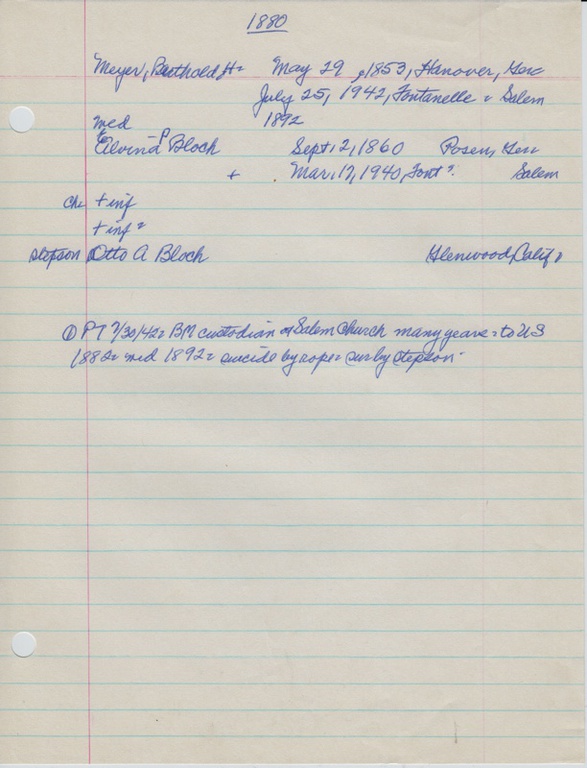 1880
Meyer, Barthold H= May 29, 1853, Hanover, Ger
July 25, 1942, Fontanelle = Salem
med 1892
Elvina P Bloch Sept. 12, 1860 Posen, Ger
+ Mar. 17, 1940, Font =. Salem
ch. + inf
+ inf =
stepson Otto A Bloch Glenwood, Calif
① PT 7/30/42= BM custodian of Salem Church many years = to US
1882= med 1892= suicide by rope= sur by stepson-